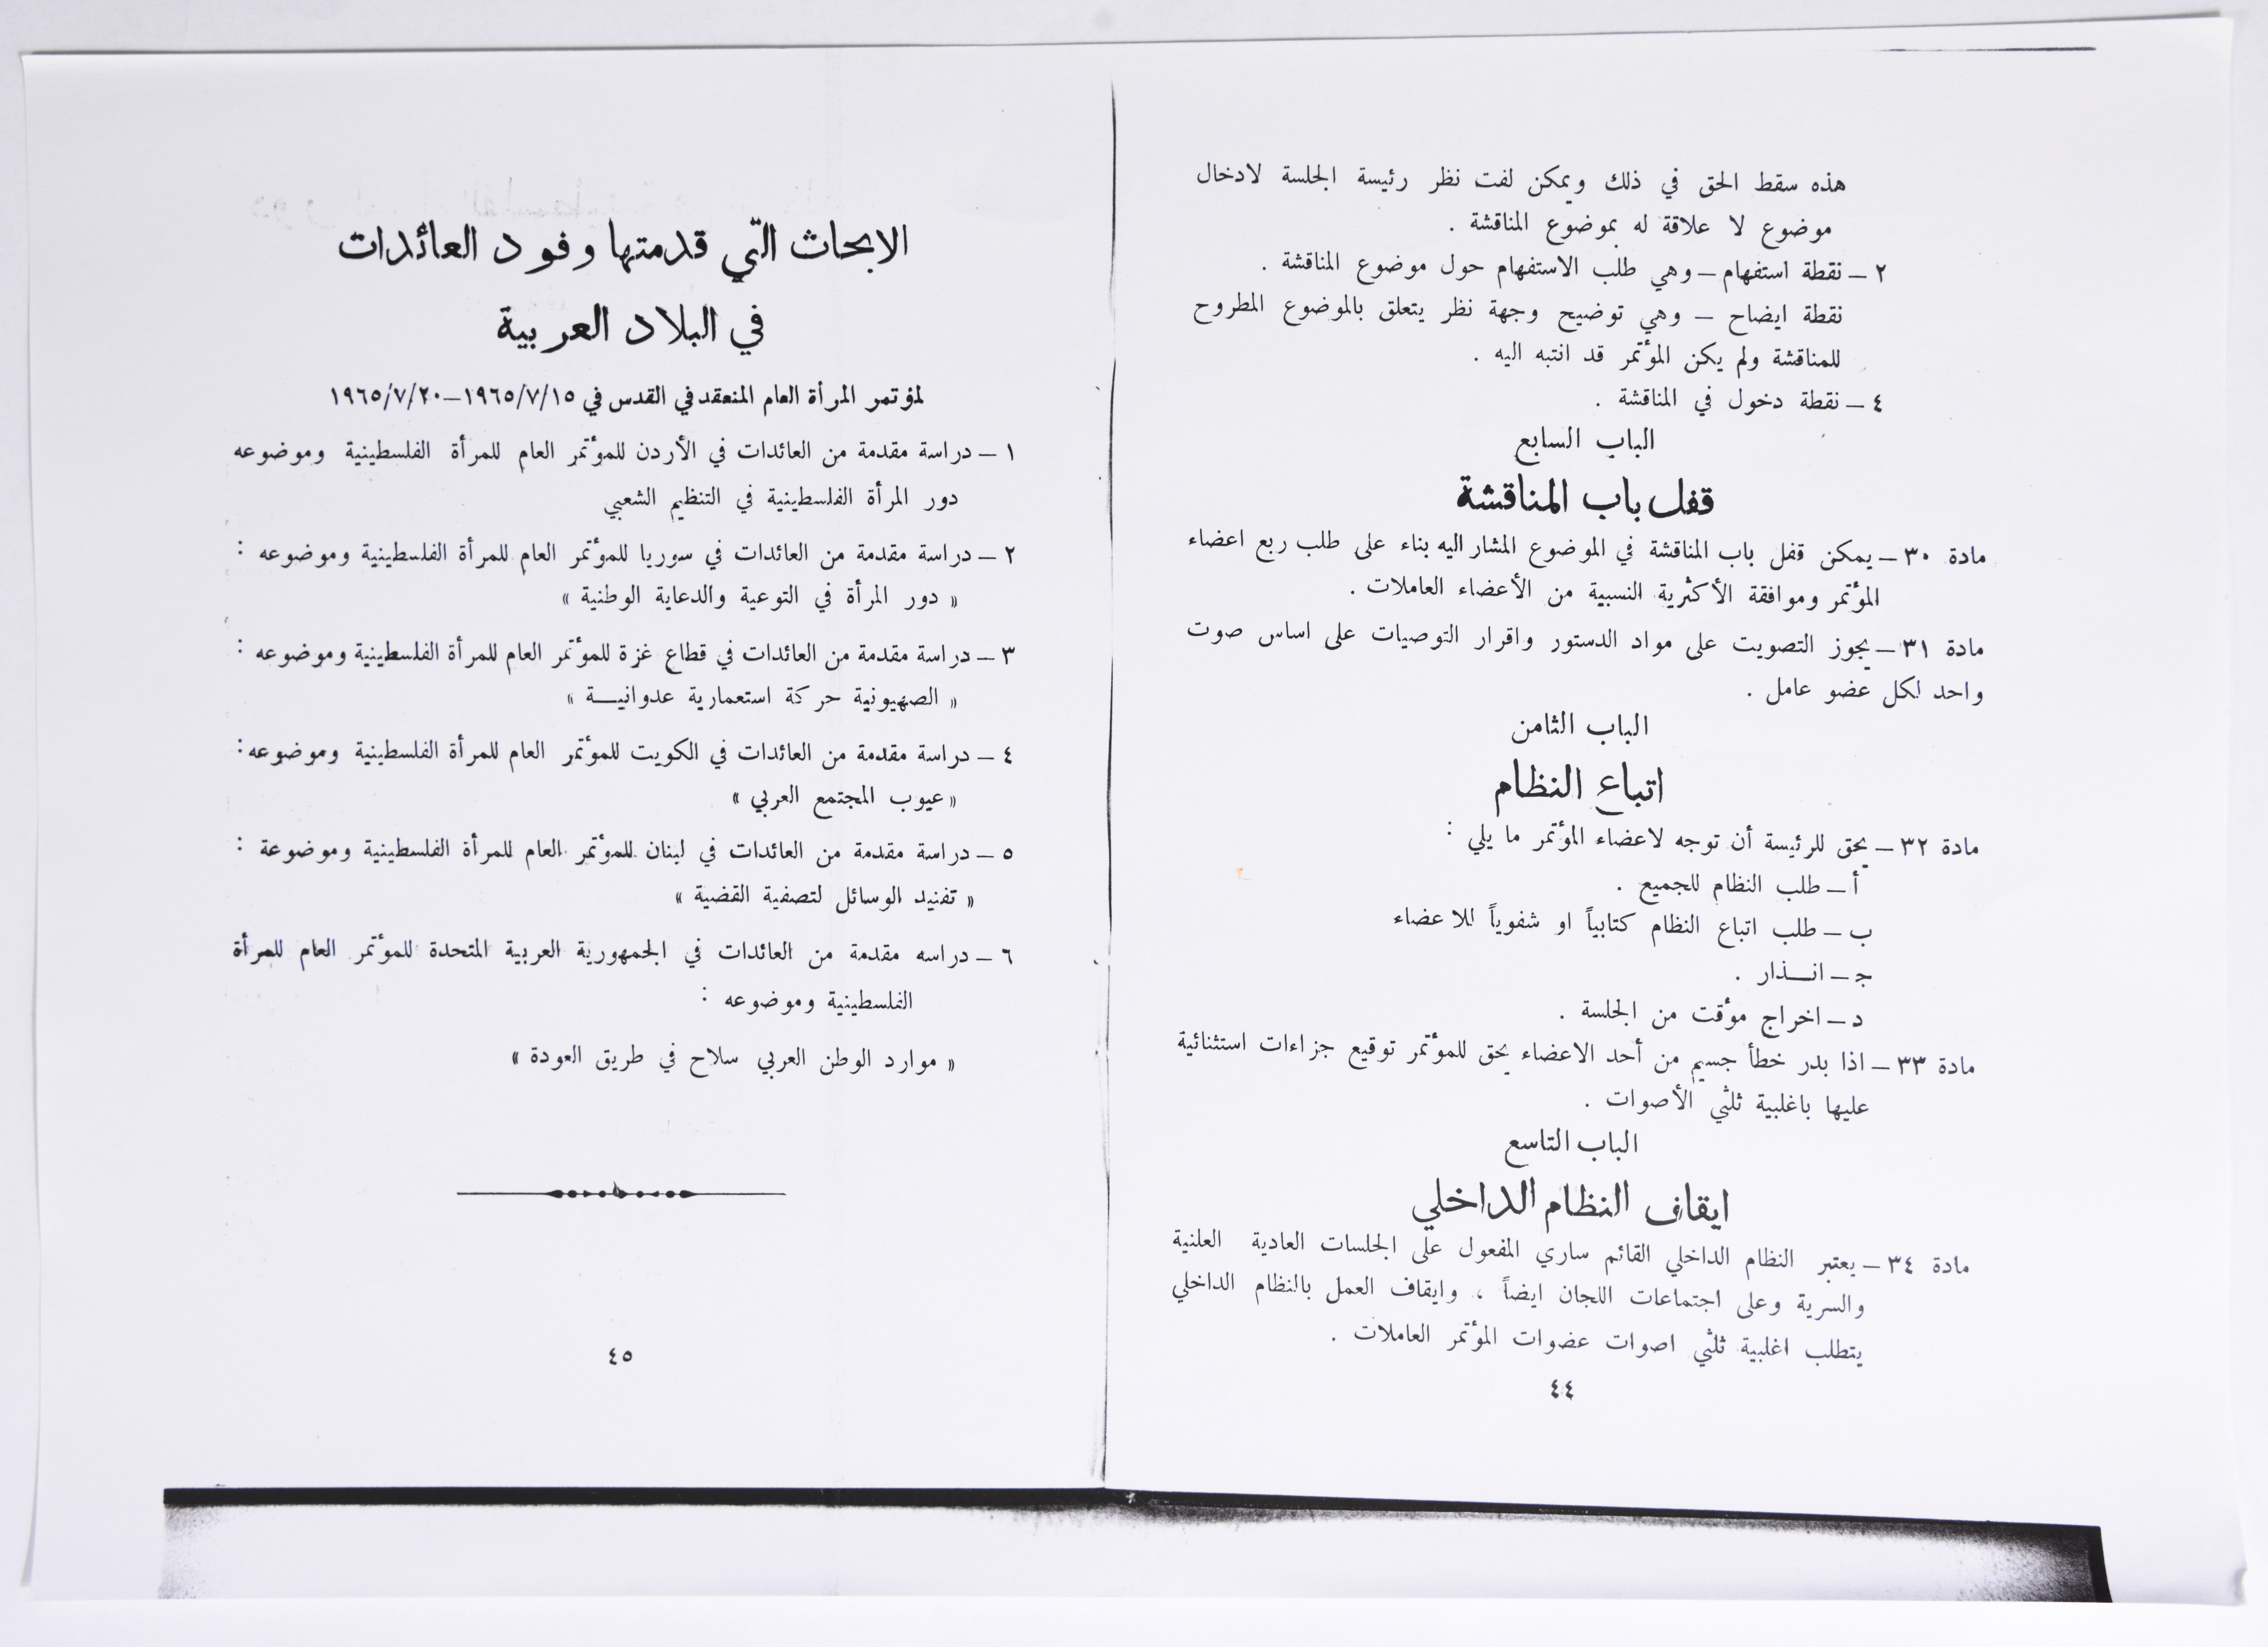 هذه سقط الحق في ذلك ويمكن لفت نظر رئيسة الجلسة لادخال
موضوع لا علاقة له بموضوع المناقشة .
٢ – نقطة استفهام – وهي طلب الاستفهام حول موضوع المناقشة .
نقطة ايضاح – وهي توضيح وجهة نظر يتعلق بالموضوع المطروح
للمناقشة ولم يكن المؤتمر قد انتبه اليه .
٤ – نقطة دخول في المناقشة .
الباب السابع
قفل باب المناقشة
مادة ٣٠ – يمكن قفل باب المناقشة في الموضوع المشار اليه بناء على طلب ربع اعضاء
المؤتمر وموافقة الأكثرية النسبية من الأعضاء العاملات .
مادة ٣١ – يجوز التصويت على مواد الدستور واقرار التوصيات على اساس صوت
واحد لكل عضو عامل .
الباب الثامن
اتباع النظام
مادة ٣٢ – يحق للرئيسة أن توجه لاعضاء المؤتمر ما يلي :
أ – طلب النظام للجميع .
ب – طلب اتباع النظام كتابياً او شفوياً للاعضاء
ج – انـــذار .
د – اخراج مؤقت من الجلسة .
مادة ٣٣ – اذا بدر خطأ جسيم من أحد الاعضاء يحق للمؤتمر توقيع جزاءات استثنائية
عليها باغلبية ثلثي الأصوات .
الباب التاسع
ايقاف النظام الداخلي
مادة ٣٤ – يعتبر النظام الداخلي القائم ساري المفعول على الجلسات العادية العلنية
والسرية وعلى اجتماعات اللجان ايضاً ، وايقاف العمل بالنظام الداخلي
يتطلب اغلبية ثلثي اصوات عضوات المؤتمر العاملات .
٤٤
الابحاث التي قدمتها وفود العائدات
في البلاد العربية
لمؤتمر المرأة العام المنعقد في القدس في ١٩٦٥/٧/١٥–١٩٦٥/٧/٢٠
١ – دراسة مقدمة من العائدات في الأردن للمؤتمر العام للمرأة الفلسطينية وموضوعه
دور المرأة الفلسطينية في التنظيم الشعبي
٢ – دراسة مقدمة من العائدات في سوريا للمؤتمر العام للمرأة الفلسطينية وموضوعه :
« دور المرأة في التوعية والدعاية الوطنية »
٣ – دراسة مقدمة من العائدات في قطاع غزة للمؤتمر العام للمرأة الفلسطينية وموضوعه :
« الصهيونية حركة استعمارية عدوانيـــة »
٤ – دراسة مقدمة من العائدات في الكويت للمؤتمر العام للمرأة الفلسطينية وموضوعه :
« عيوب المجتمع العربي »
٥ – دراسة مقدمة من العائدات في لبنان للمؤتمر العام للمرأة الفلسطينية وموضوعة :
« تفنيد الوسائل لتصفية القضية »
٦ – دراسه مقدمة من العائدات في الجمهورية العربية المتحدة للمؤتمر العام للمرأة
الفلسطينية وموضوعه :
« موارد الوطن العربي سلاح في طريق العودة »
٤٥